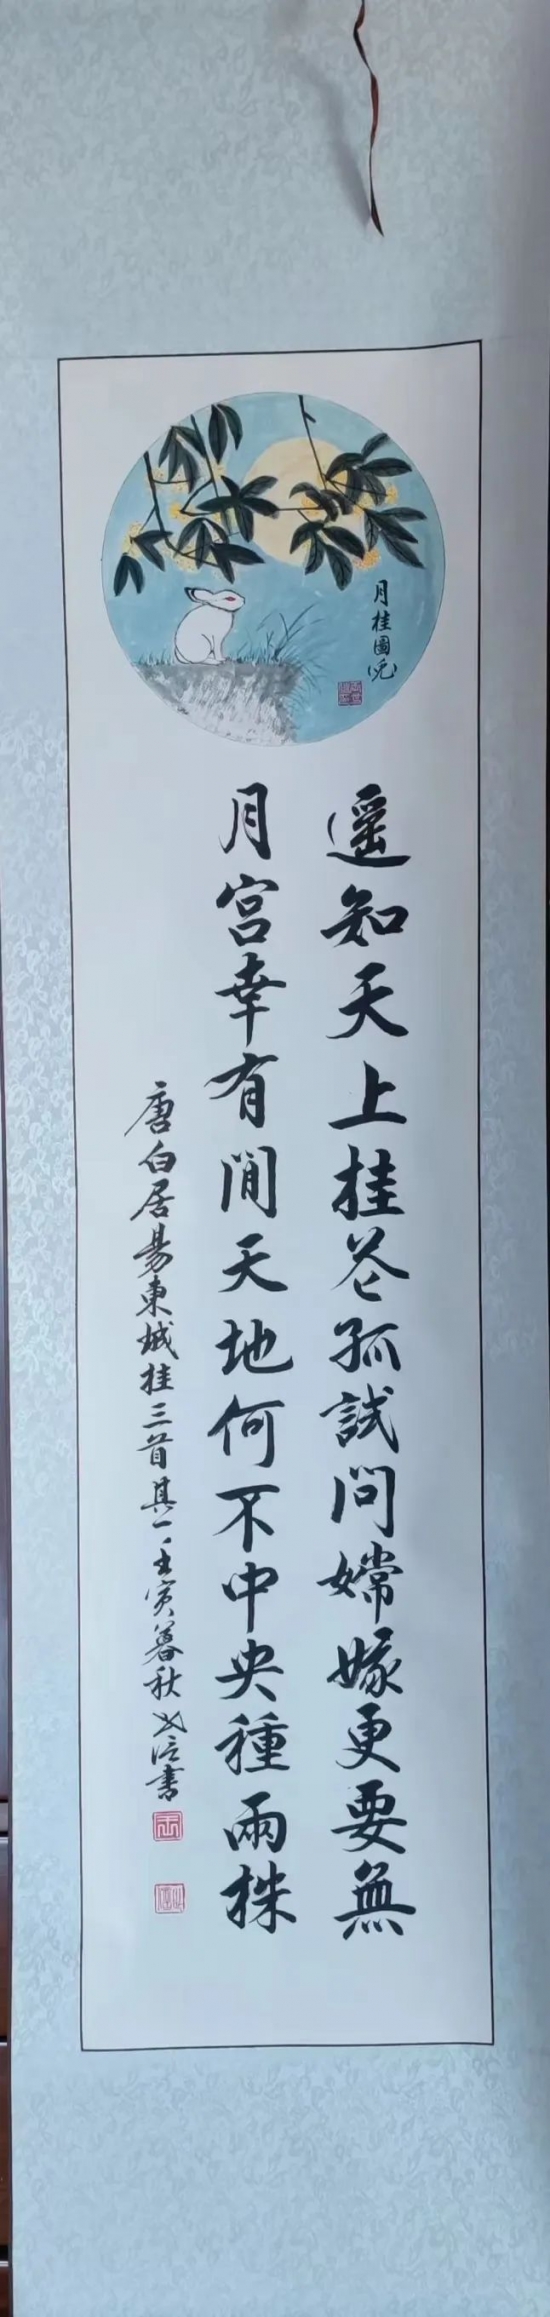 月桂圖
遥知天上桂花孤試問嫦娥更要無
月宮幸有閒天地何不中央種兩株
唐白居易東城桂三首其一壬寅暮秋世信書